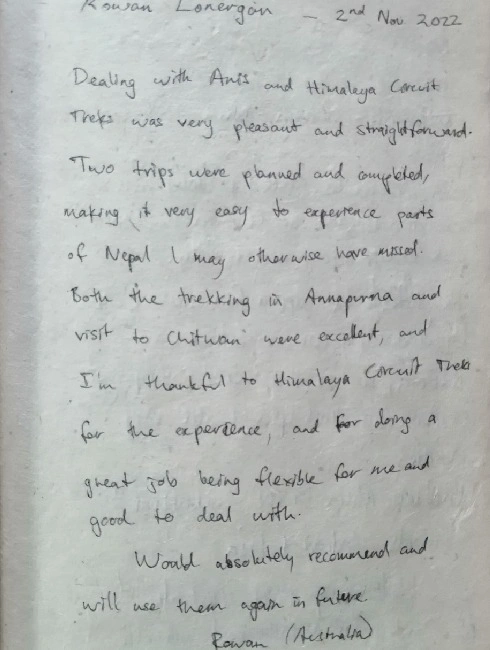 Rowan Lonergan - 2nd Nov 2022
Dealing with Anis and Himalaya Circuit
Treks was very pleasant and straightforward.
Two trips were planned and completed,
making it very easy to experience parts
of Nepal I may otherwise have missed.
Both the trekking in Annapurna and
visit to Chitwan were excellent, and
I'm thankful to Himalaya Circuit Treks
for the experience, and for doing a
great job being flexible for me and
good to deal with.
Would absolutely recommend and
will use them again in future.
Rowan (Australia)